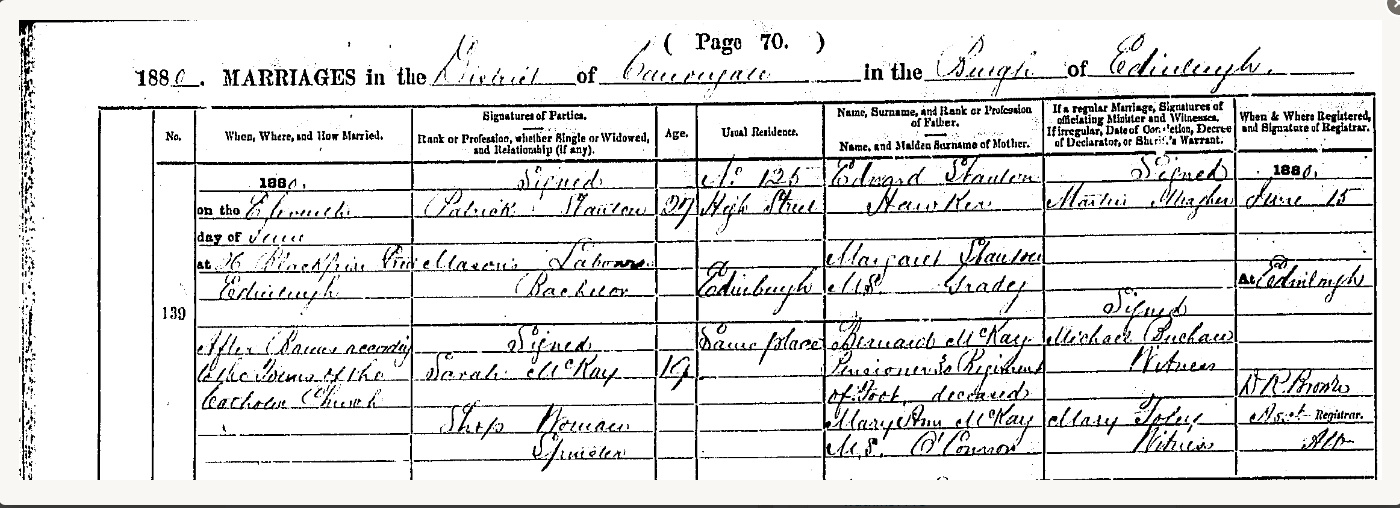 ( Page 70. )
1880. MARRIAGES in the District of Canongate in the Burgh of Edinburgh.
No.
When, Where, and How Married.
Signatures of Parties.
Rank or Profession, whether Single or Widowed,
and Relationship (if any).
Age.
Usual Residence.
Name, Surname, and Rank or Profession
of Father.
Name, and Maiden Surname of Mother.
If a regular Marriage, Signatures of
officiating Minister and Witnesses.
If irregular, Date of Conviction, Decree
of Declarator, or Sheriff's Warrant.
When & Where Registered,
and Signature of Registrar.
139
1880.
on the Eleventh
day of June
at Blackfriars
Edinburgh
After Banns according
to the Forms of the
Catholic Church
Signed
Patrick Stanton
Mason's Labourer
Bachelor
Signed
Sarah McKay
Shop Woman
Spinster
27
19
No. 125
High Street
Edinburgh
Same place
Edward Stanton
Hawker
Margaret Stanton
M.S. Grady
Bernard McKay
Pensioner Regiment
of Foot, deceased
Mary Ann McKay
M.S. O'Connor
Signed
Martin Meagher
Signed
Michael
Witness
Mary Foley
Witness
1880.
June 15
at Edinburgh
Asst. Registrar.